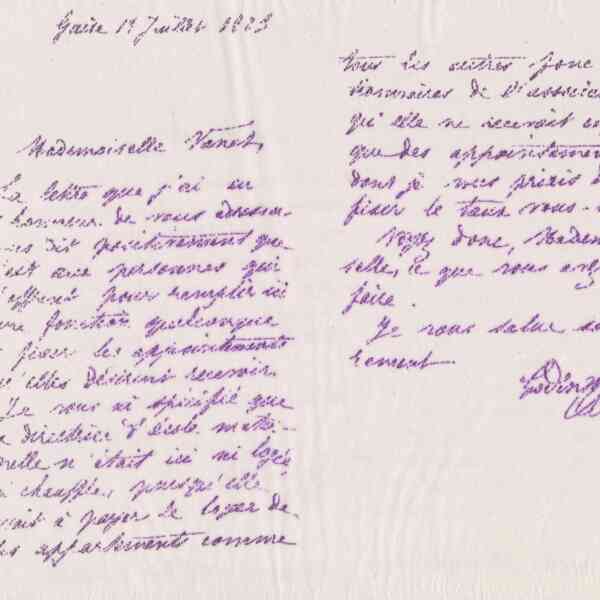 Guise 17 Juillet 1883
Mademoiselle Vanet,
La lettre que j'ai eu
honneur de vous adresser
dit positivement que
c'est aux personnes qui
s'offrent pour remplir ici
une fonction quelconque
fixer les appointements
qu'elles désirent recevoir.
Je vous ai spécifié que
la directrice d'école mater-
nelle n'était ici ni logée
ni chauffée, puisqu'elle
avait à payer le loyer de
ses appartements comme
tous les autres fonc
tionnaires de l'associa
qu'elle ne recevait
que des appointemen
dont je vous priais d
fixer le taux vous-
Voyez donc, Madem
selle, ce que vous avez
faire.
Je vous salue
rement
Godin